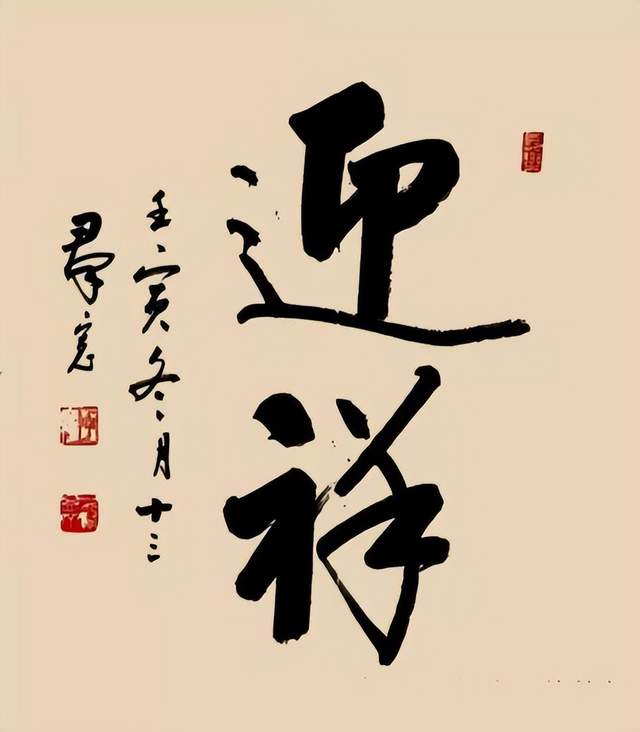 迎祥
壬寅冬月十三